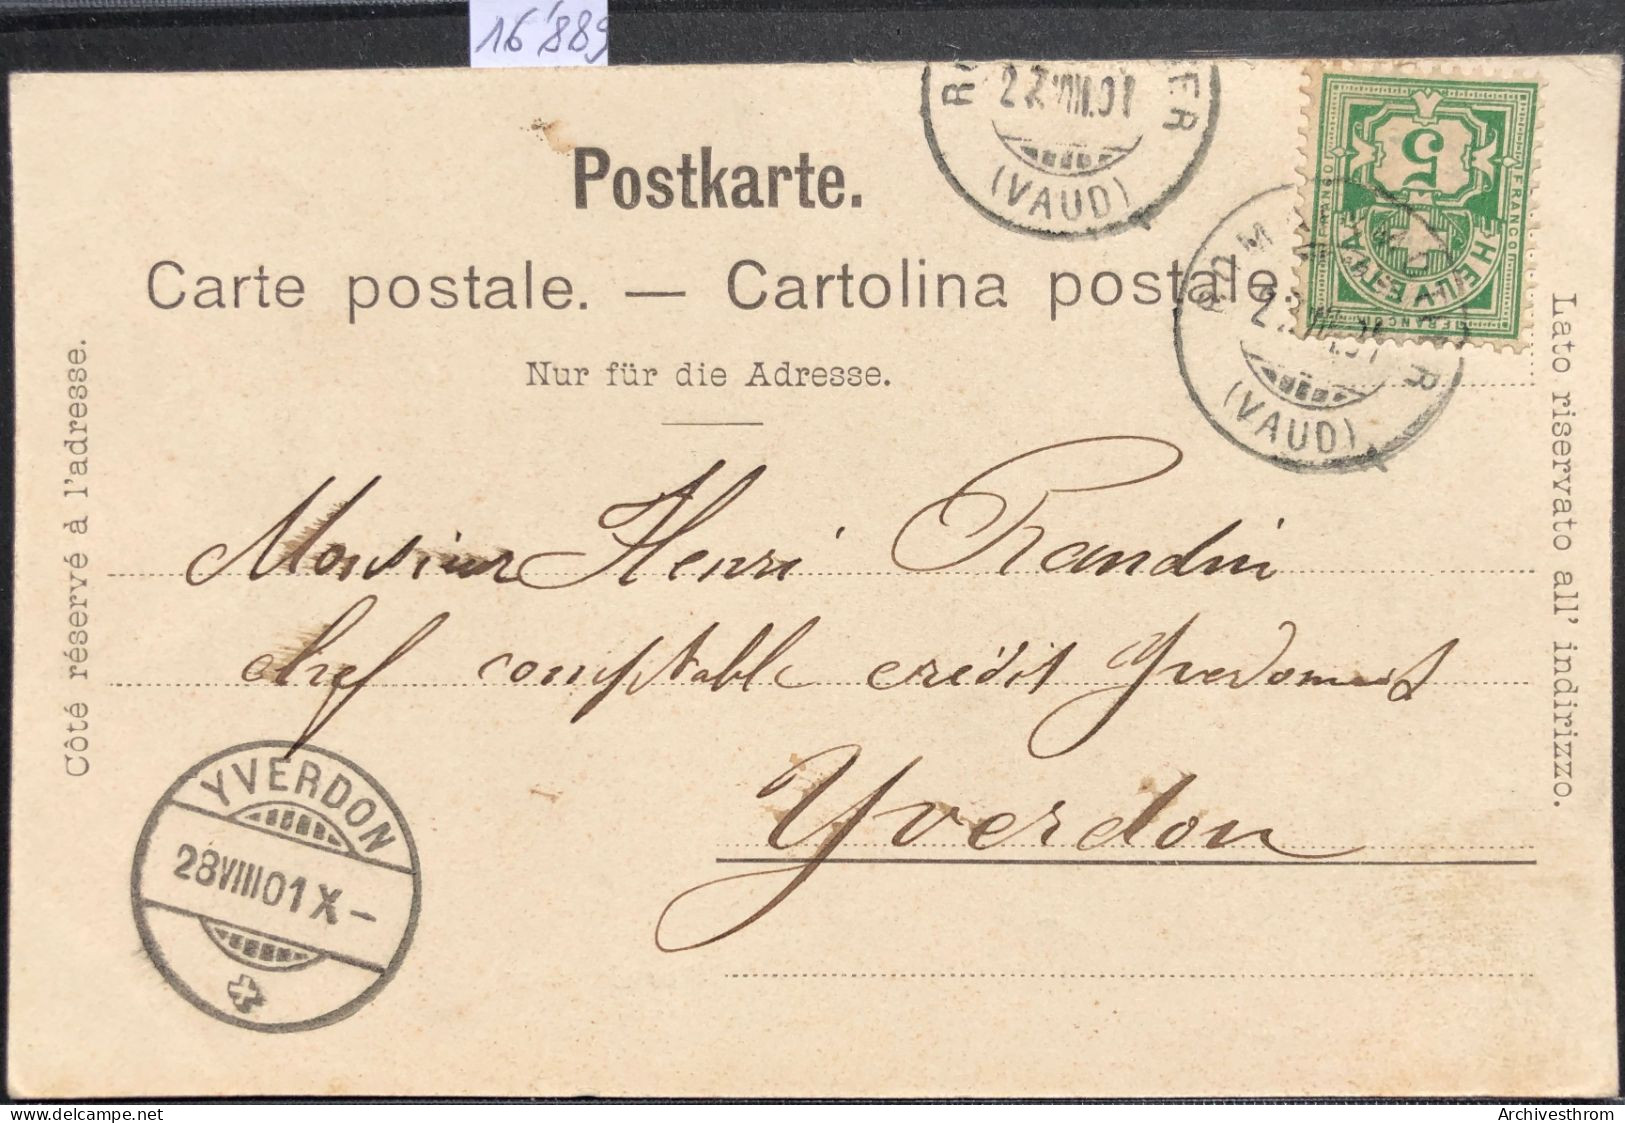 16'889
27.VIII.01
(VAUD)
5
FRANCO
FRANCO
HELVETIA
FRANCO
Postkarte.
Carte postale. — Cartolina postale.
(VAUD)
Nur für die Adresse.
Côté réservé à l'adresse.
Lato riservato all' indirizzo.
Monsieur Henri
chef comptable crédit Yverdonnois
Yverdon
YVERDON
28VIII01X-
Archivesthrom